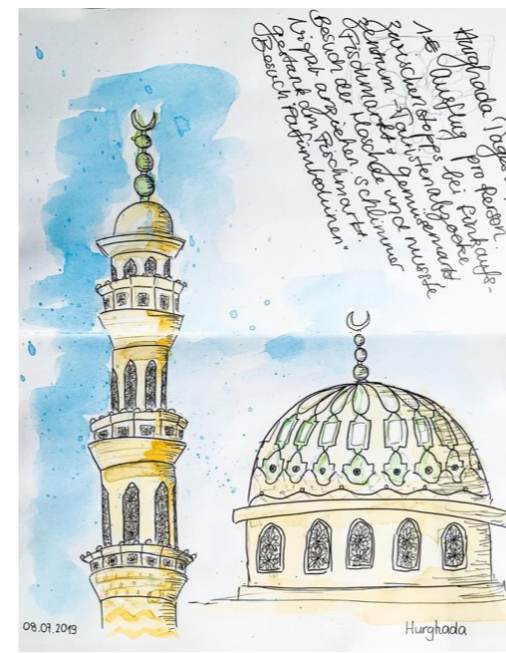 Hurghada Tages
1€ Ausflug pro Person.
Zwischenstopps bei Einkaufs-
zentrum, Touristenabzocke
Fischmarkt, Gemüsemarkt
Besuch der Moschee und musste
Niqab anziehen, schlimmer
gestank am Fischmarkt.
Besuch Parfümbeduinen.
08.07.2019
Hurghada